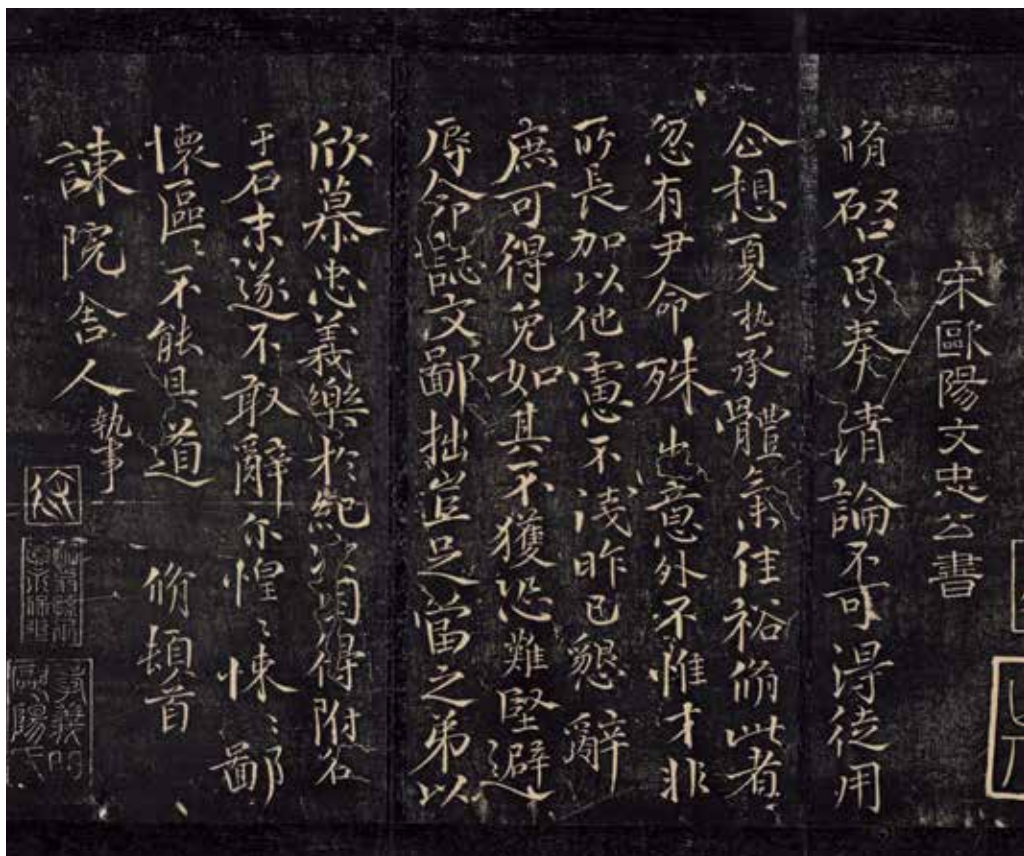 宋歐陽文忠公書
脩啓思奉清論不可得徒用
企想夏热承體氣佳裕脩此者
忽有尹命殊出意外不惟才非
所長加以他慮不淺昨已懇辭
庶可得免如其不獲恐難堅避
辱命誌文鄙拙豈足當之弟以
欣慕忠義樂於紀次自得附名
于石未遂不敢辭尔惶〻悚〻鄙
懷區〻不能具道 脩頓首
諫院舍人執事